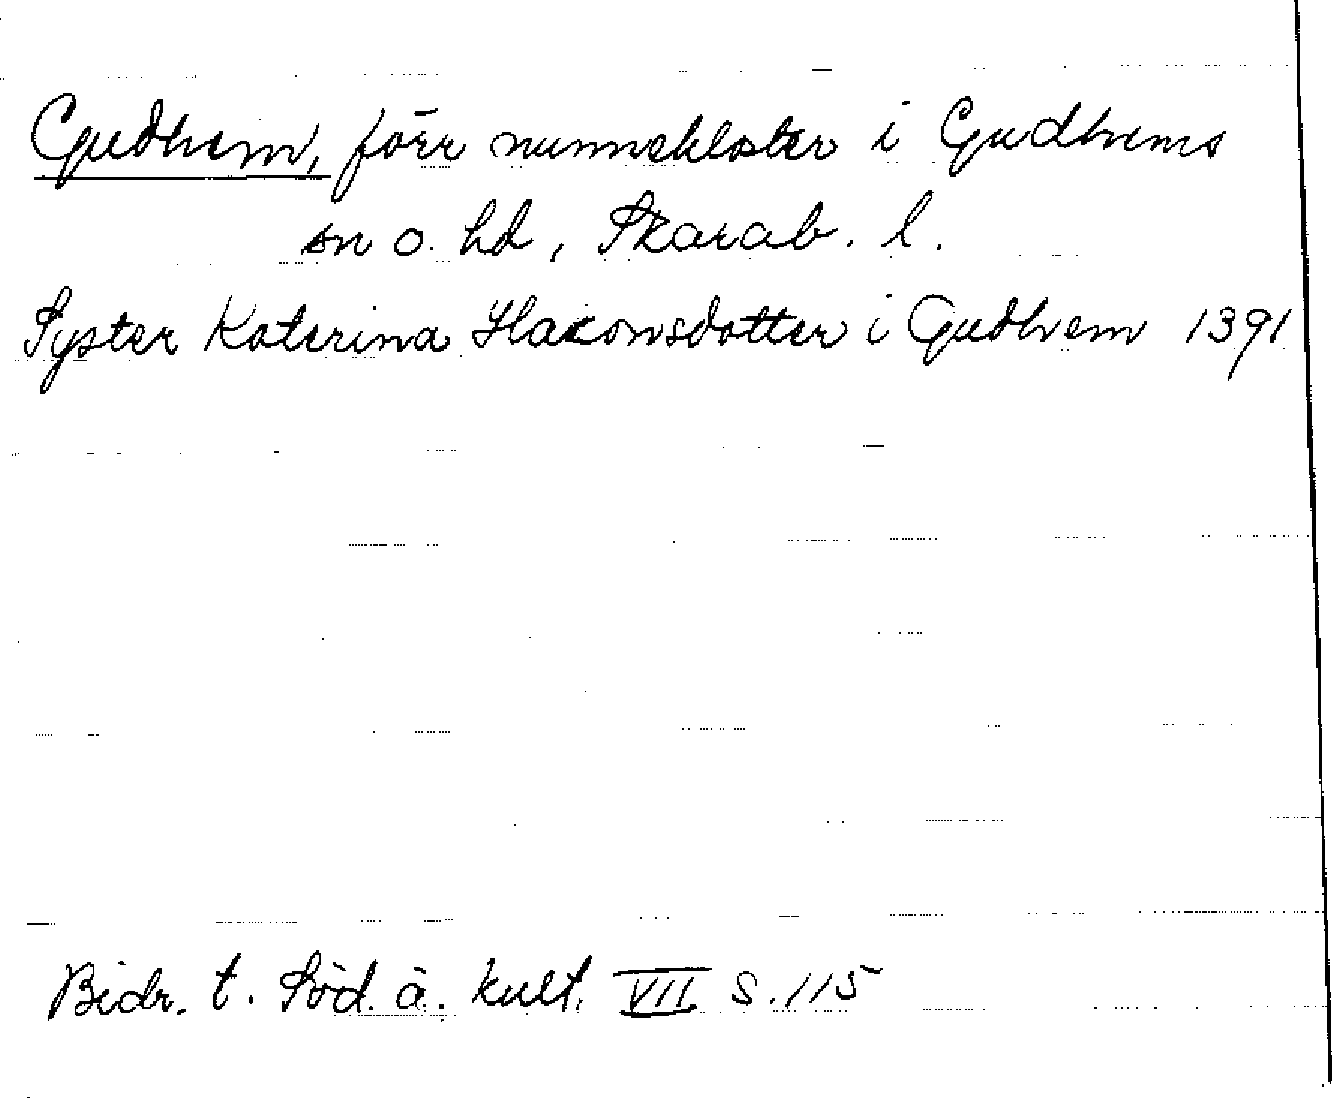 Gudhem, förr nunnekloster i Gudhems
sn o. hd, Skarab. l.
Syster Katerina Haconsdotter i Gudhem 1391
Bidr. t. Söd. ä. kult. VII s. 115